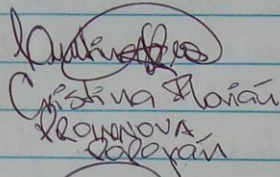 Cristina Florián
PROINNOVA
Popayán